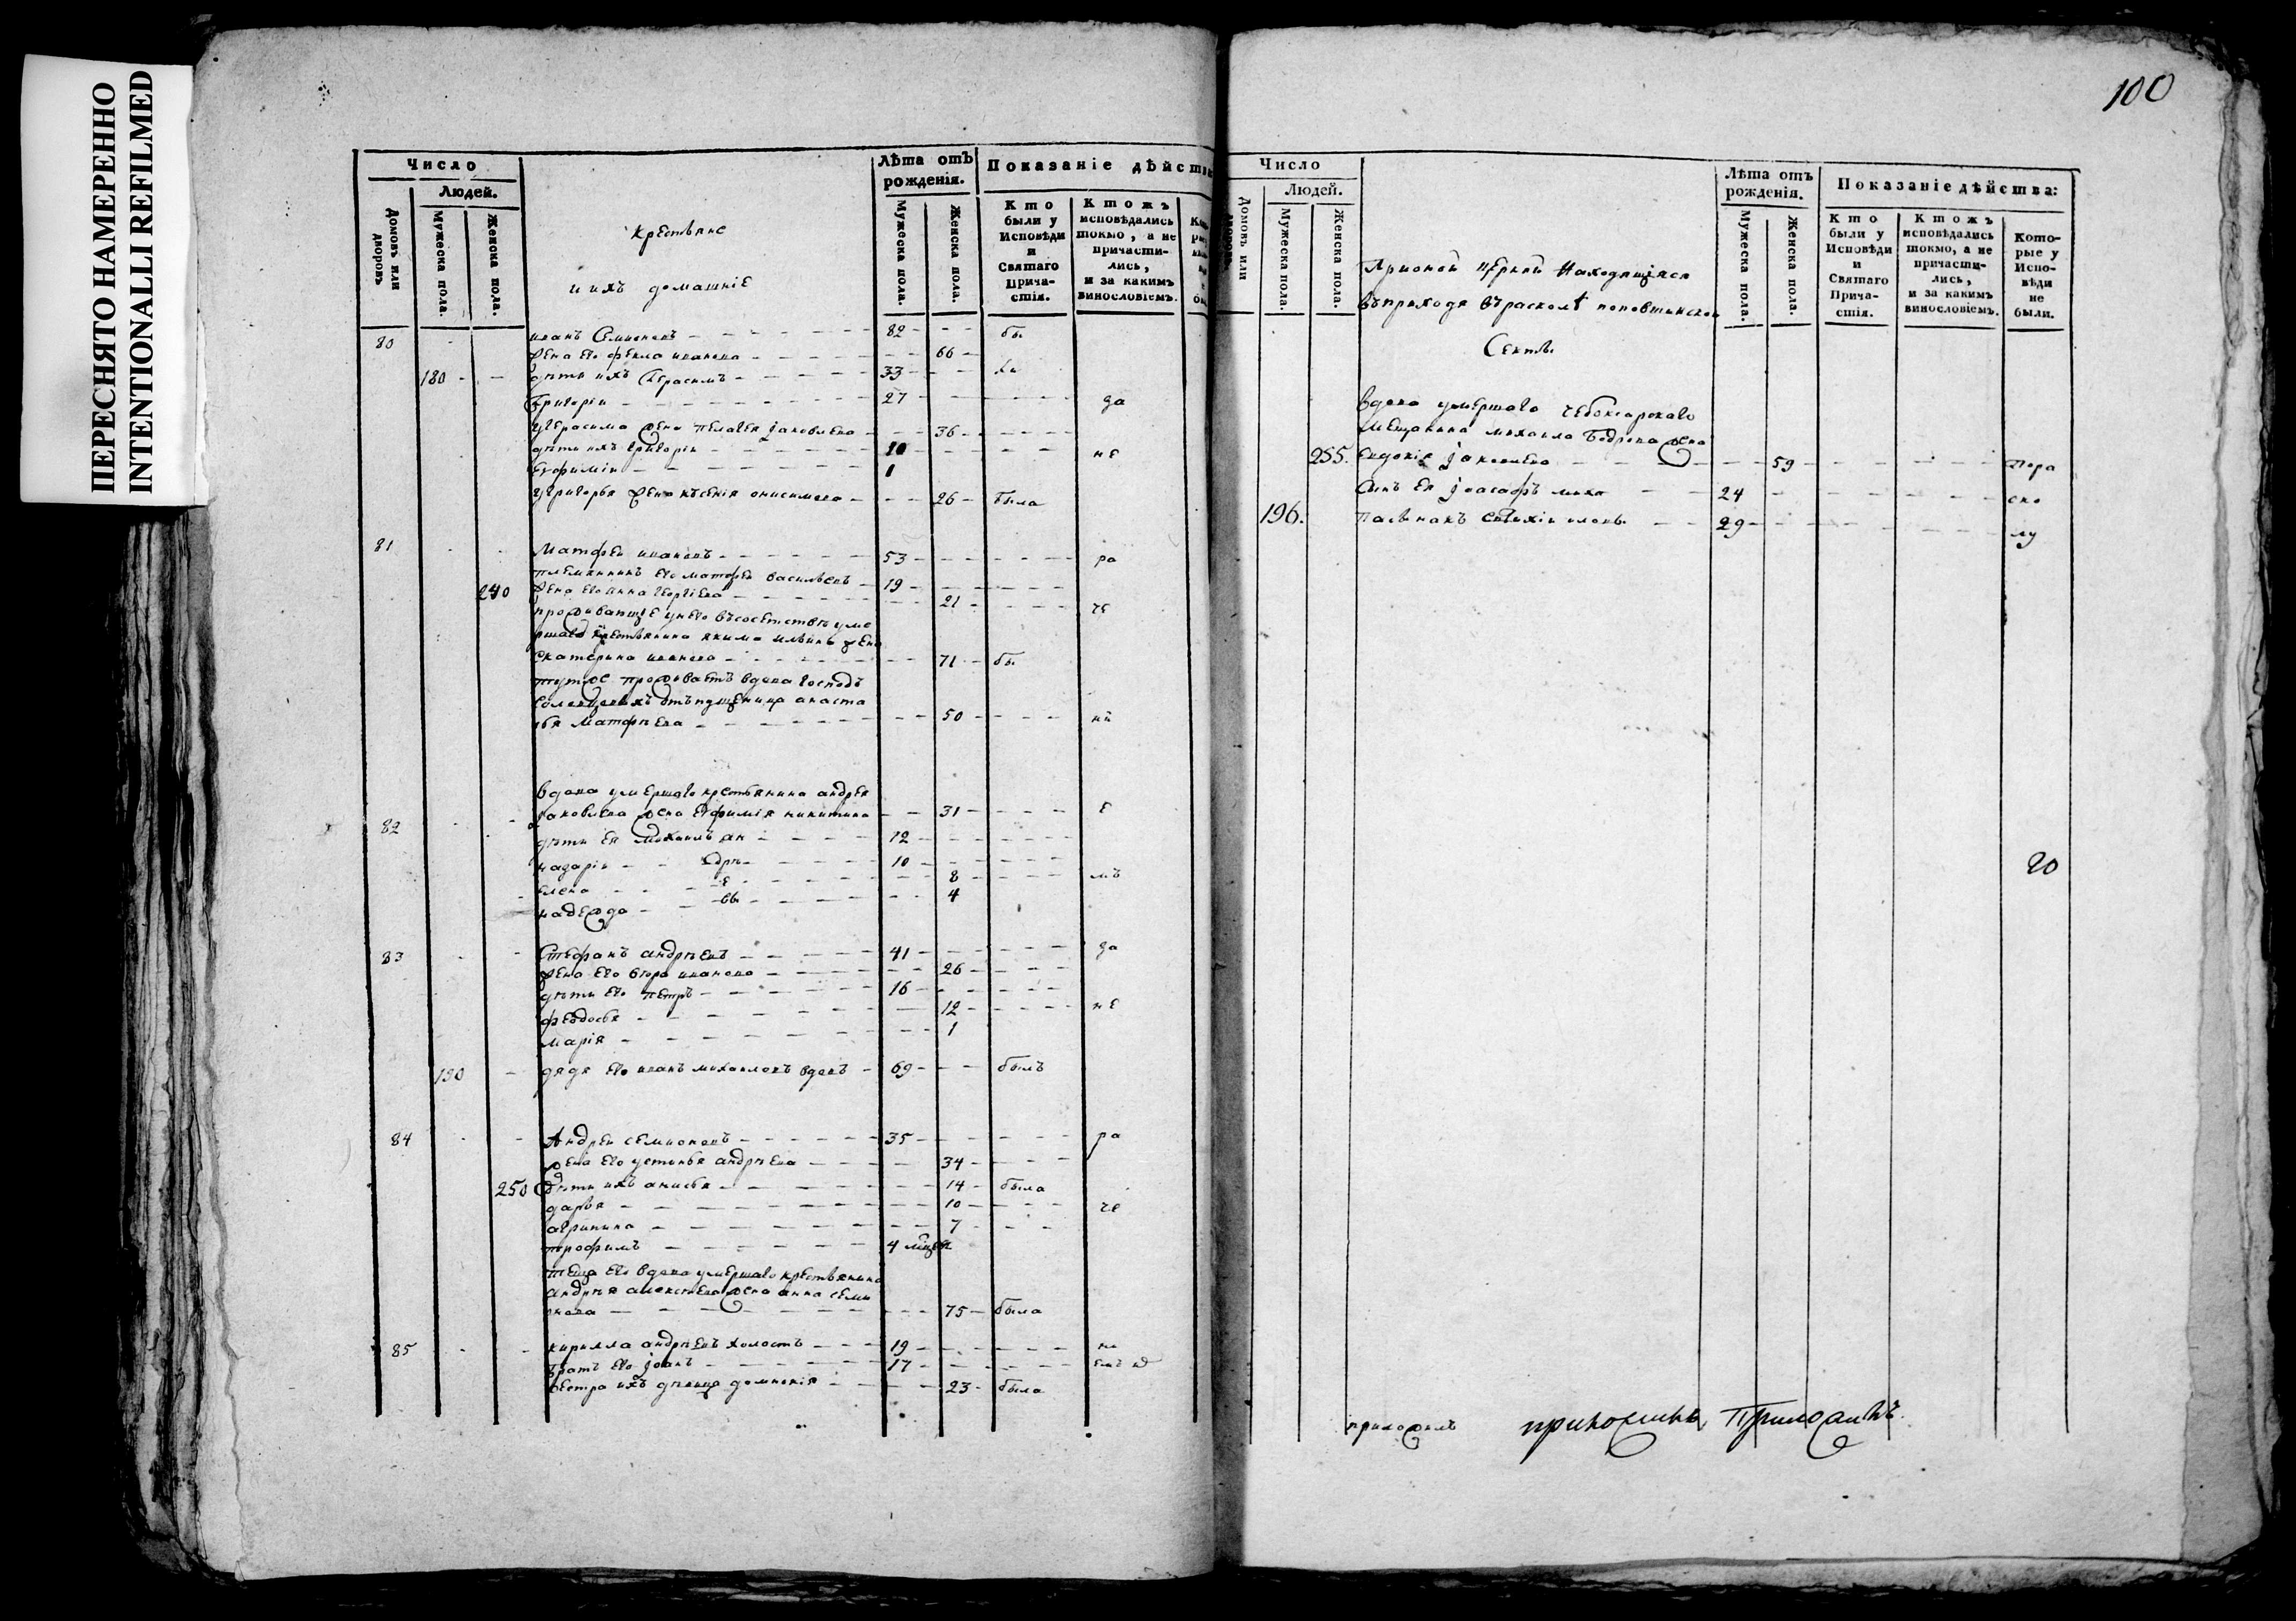 ПЕРЕСНЯТО НАМЕРЕННО
INTENTIONALLI REFILMED
Число
Людей.
Домовъ или дворовъ
Мужеска пола.
Женска пола.
крестьяне
и ихъ домашніе
Лѣта отъ рожденія.
Мужеска пола.
Женска пола.
Показаніе дѣйств
Кто были у Исповѣди и Святаго Причастія.
Ктожъ исповѣдались токмо, а не причастились, и за какимъ винословіемъ.
80 иванъ Семионовъ 82 бы
жена его фекла иванова 66
180 дѣти ихъ Герасимъ 33 ли
Григории 27 за
у Герасима жена пелагея яковлева 36
дѣти ихъ Григорiи 10 не
Евфимiи 1
у Григорья жена ксенiя онисимова 26 была
81 Матфеи ивановъ 53 ра
племянникъ его матфеи васильевъ 19
240 жена его анна Георгiева 21 че
проживающiе у него въ соседствѣ уме
ршаго крестьянина якима ильина жена
Екатерина иванова 71 бы
тутже проживаетъ вдова господъ
отъпущеница анаста
сья Матфѣева 50 нїи
вдова умершаго крестьянина андрея
82 яковлева жена Евфимiя никитина 31 е
дѣти ея Михаилъ ан 12
назарiи дрѣ 10
елена е 8 мъ
надежда вы 4
83 Стефанъ андрѣевъ 41 за
жена его вера иванова 26
дѣти его петръ 16
феодосья 12 не
марiя 1
190 дядя его иванъ михаиловъ вдовъ 69 былъ
84 Андреи семионовъ 35 ра
жена его устинья андрѣева 34
250 дѣти ихъ анисья 14 была
дарья 10 че
агрипина 7
трофимъ 4 мцъ
теща его вдова умершаго крестьянина
андрѣя алексѣева жена анна семи
онова 75 была
85 кирилла андрѣевъ холостъ 19 нi
братъ его iоанъ 17 емъ
сестра ихъ дѣвица домникiя 23 была
100
Число
Людей.
Домовъ или дворовъ
Мужеска пола.
Женска пола.
При оной церкви находящiяся
въ приходѣ въ расколѣ поповщинской
Секты
Лѣта отъ рожденія.
Мужеска пола.
Женска пола.
Показаніе дѣйства:
Кто были у Исповѣди и Святаго Причастія.
Ктожъ исповѣдались токмо, а не причастились, и за какимъ винословіемъ.
Которые у Исповѣди не были.
вдова умершаго чебоксарскаго
мещанина михаила Бодрова жена
255. Евдокiя яковлева 59 пора
сынъ ея iоасафъ миха 24 ско
196. пасынокъ иловы 29 лу
20
приложилъ приложилъ Приложилъ